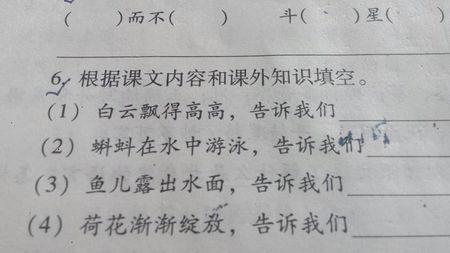 (　　)而不(　　)　　斗(　　)星(　　)
6. 根据课文内容和课外知识填空。
(1) 白云飘得高高，告诉我们
(2) 蝌蚪在水中游泳，告诉我们
(3) 鱼儿露出水面，告诉我们
(4) 荷花渐渐绽放，告诉我们